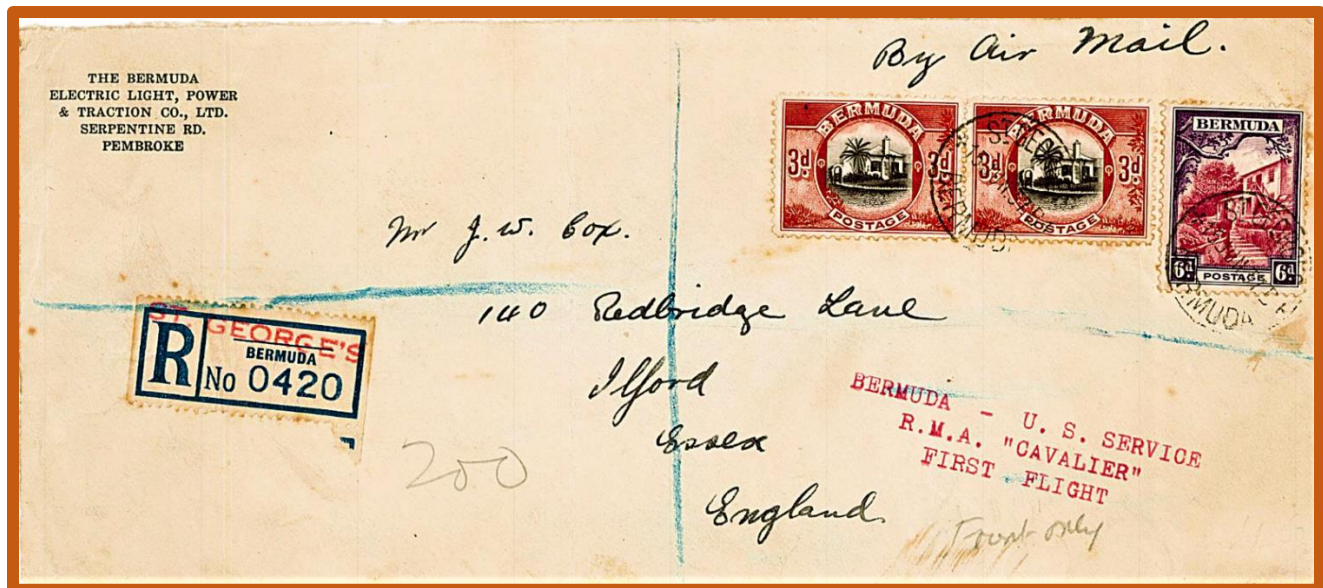 THE BERMUDA
ELECTRIC LIGHT, POWER
& TRACTION CO., LTD.
SERPENTINE RD.
PEMBROKE
By Air Mail.
BERMUDA
3d. 3d.
POSTAGE
BERMUDA
3d. 3d.
POSTAGE
BERMUDA
6d 6d
POSTAGE
BERMUDA
Mr J. W. Cox.
140 Redbridge Lane
Ilford
Essex
England
ST. GEORGE'S
BERMUDA
R No 0420
200
BERMUDA - U. S. SERVICE
R.M.A. "CAVALIER"
FIRST FLIGHT
Front only